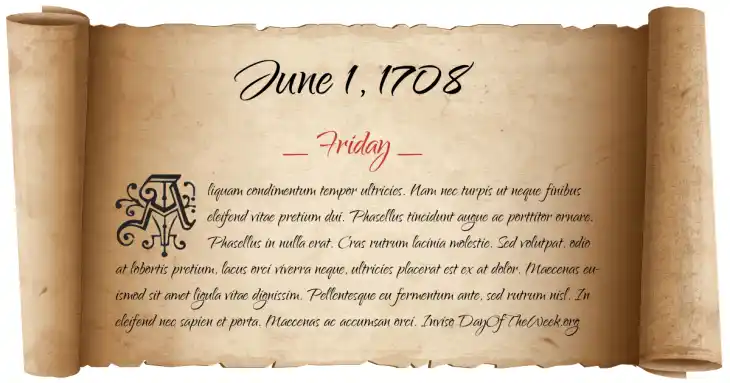 June 1, 1708
_ Friday _
Aliquam condimentum tempor ultricies. Nam nec turpis ut neque finibus
eleifend vitae pretium dui. Phasellus tincidunt augue ac porttitor ornare.
Phasellus in nulla erat. Cras rutrum lacinia molestie. Sed volutpat, odio
at lobortis pretium, lacus orci viverra neque, ultricies placerat est ex at dolor. Maecenas eu-
ismod sit amet ligula vitae dignissim. Pellentesque eu fermentum ante, sed rutrum nisl. In
eleifend nec sapien et porta. Maecenas ac accumsan orci. Inviso DayOfTheWeek.org